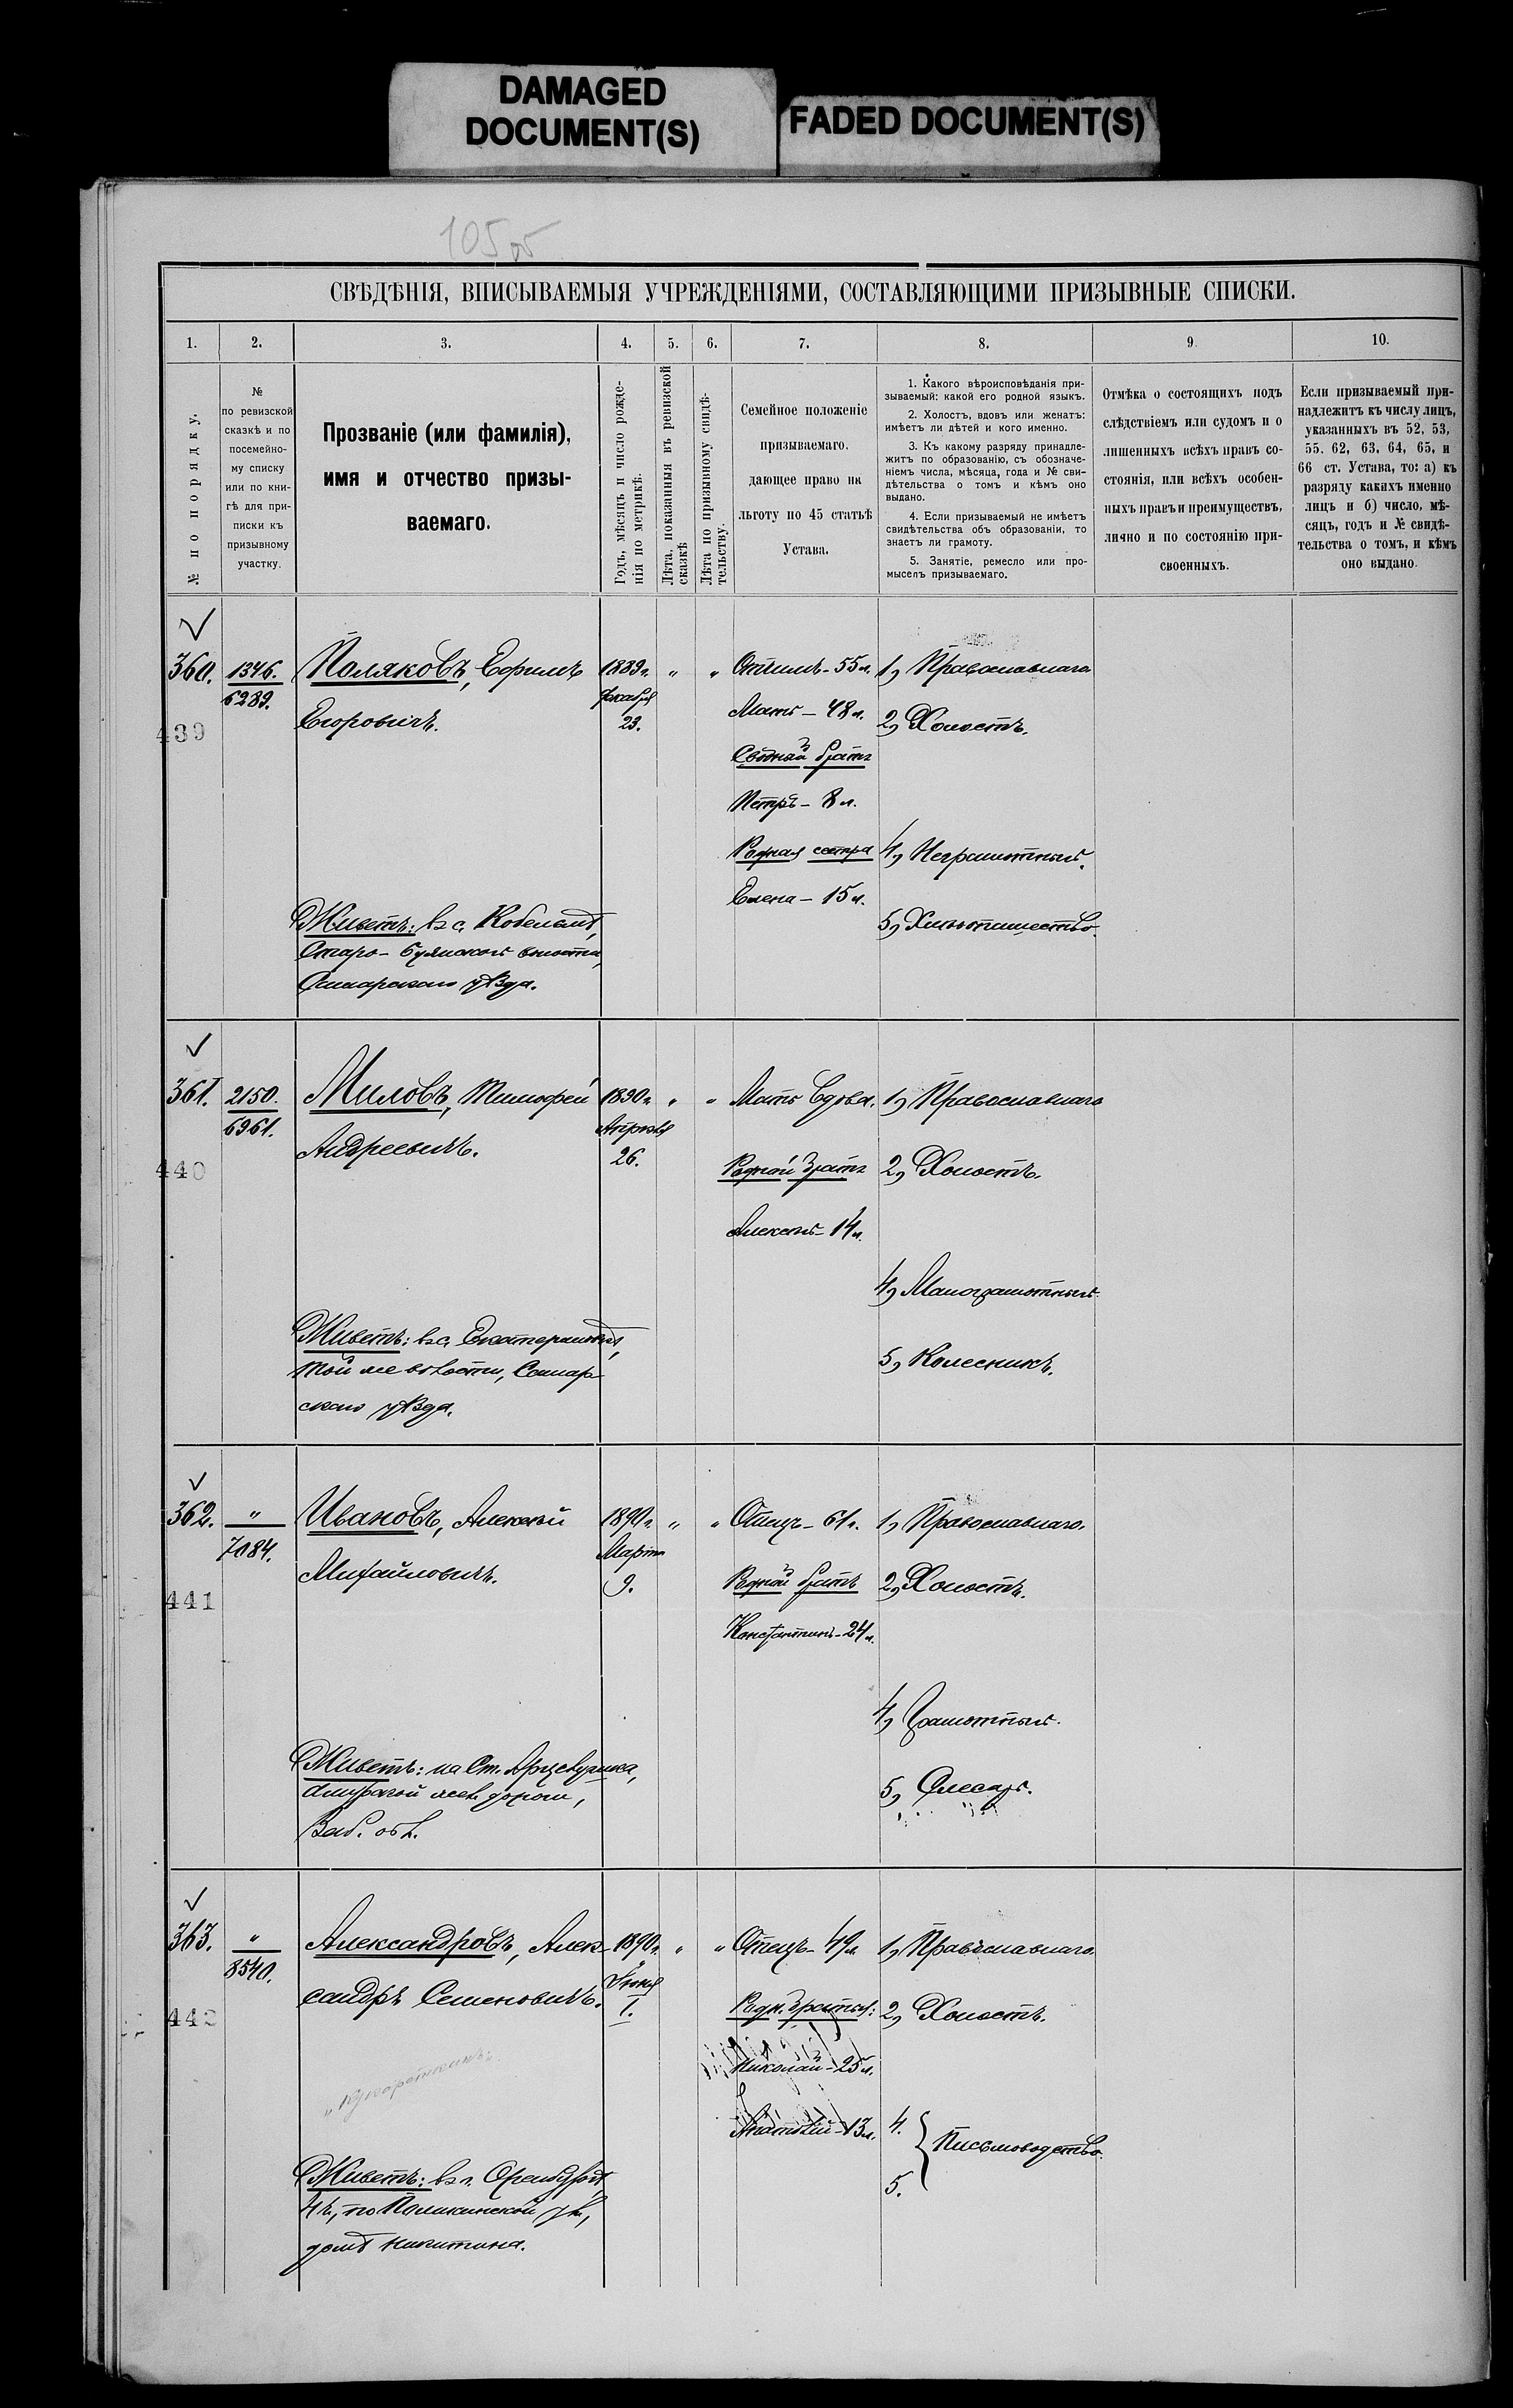 DAMAGED
DOCUMENT(S)
FADED DOCUMENT(S)
105 об
СВѢДѢНІЯ, ВПИСЫВАЕМЫЯ УЧРЕЖДЕНІЯМИ, СОСТАВЛЯЮЩИМИ ПРИЗЫВНЫЕ СПИСКИ.
1.
2.
3.
4.
5.
6.
7.
8.
9.
10.
№ по порядку.
№
по ревизской
сказкѣ и по
посемейно-
му списку
или по кни-
гѣ для при-
писки къ
призывному
участку.
Прозваніе (или фамилія),
имя и отчество призы-
ваемаго.
Годъ, мѣсяцъ и число рожде-
нія по метрикѣ.
Лѣта, показанныя въ ревизской
сказкѣ
Лѣта по призывному свидѣ-
тельству.
Семейное положеніе
призываемаго,
дающее право на
льготу по 45 статьѣ
Устава.
1. Какого вѣроисповѣданія при-
зываемый: какой его родной языкъ.
2. Холостъ, вдовъ или женатъ:
имѣетъ ли дѣтей и кого именно.
3. Къ какому разряду принадле-
житъ по образованію, съ обозначе-
ніемъ числа, мѣсяца, года и № сви-
дѣтельства о томъ и кѣмъ оно
выдано.
4. Если призываемый не имѣетъ
свидѣтельства объ образованіи, то
знаетъ ли грамоту.
5. Занятіе, ремесло или про-
мыселъ призываемаго.
Отмѣка о состоящихъ подъ
слѣдствіемъ или судомъ и о
лишенныхъ всѣхъ правъ со-
стоянія, или всѣхъ особен-
ныхъ правъ и преимуществъ,
лично и по состоянію при-
своенныхъ.
Если призываемый при-
надлежитъ къ числу лицъ,
указанныхъ въ 52, 53,
55. 62, 63, 64, 65, и
66 ст. Устава, то: а) къ
разряду какихъ именно
лицъ и б) число, мѣ-
сяцъ, годъ и № свидѣ-
тельства о томъ, и кѣмъ
оно выдано.
360.
1346.
6289.
439
Поляковъ, Ефимъ
Егоровичъ.
1889г.
Декабря
29.
"
"
Отчимъ - 55л.
Мать - 48л.
Сводный братъ
Петръ - 8л.
Родная сестра
Елена - 15л.
1, Православнаго
2, Холостъ.
4, Неграмотный.
5, Хлѣбопашество.
Живетъ: въ с. Кобельмѣ,
Старо-Буянской волости,
Самарскаго уѣзда.
361.
2150.
6961.
440
Миловъ, Тимофей
Андреевичъ.
1890г.
Апрѣля
26.
"
"
Мать вдова.
Родной братъ
Алексѣй - 14л.
1, Православнаго
2, Холостъ.
4, Малограмотный.
5, Колесникъ.
Живетъ: въ с. Екатериновкѣ,
той же волости, Самар-
скаго уѣзда.
362.
"
7084.
441
Ивановъ, Алексѣй
Михайловичъ.
1890г.
Марта
9.
"
"
Отецъ - 61л.
Родной братъ
Константинъ - 24л.
1, Православнаго.
2, Холостъ.
4, Грамотный.
5, Слесарь.
Живетъ: на Ст.
жел. дороги,
Заб. обл.
363.
"
8540.
442
Александровъ, Алек-
сандръ Семеновичъ.
1890г.
Іюня
1.
"
"
Отецъ - 49л.
Родн. братья:
Николай - 25л.
Анатолій - 13л.
1, Православнаго
2, Холостъ.
4.
5.
Письмоводство.
Живетъ: въ г. Оренбургѣ,
4 ч., по ул.,
домъ Никитина.